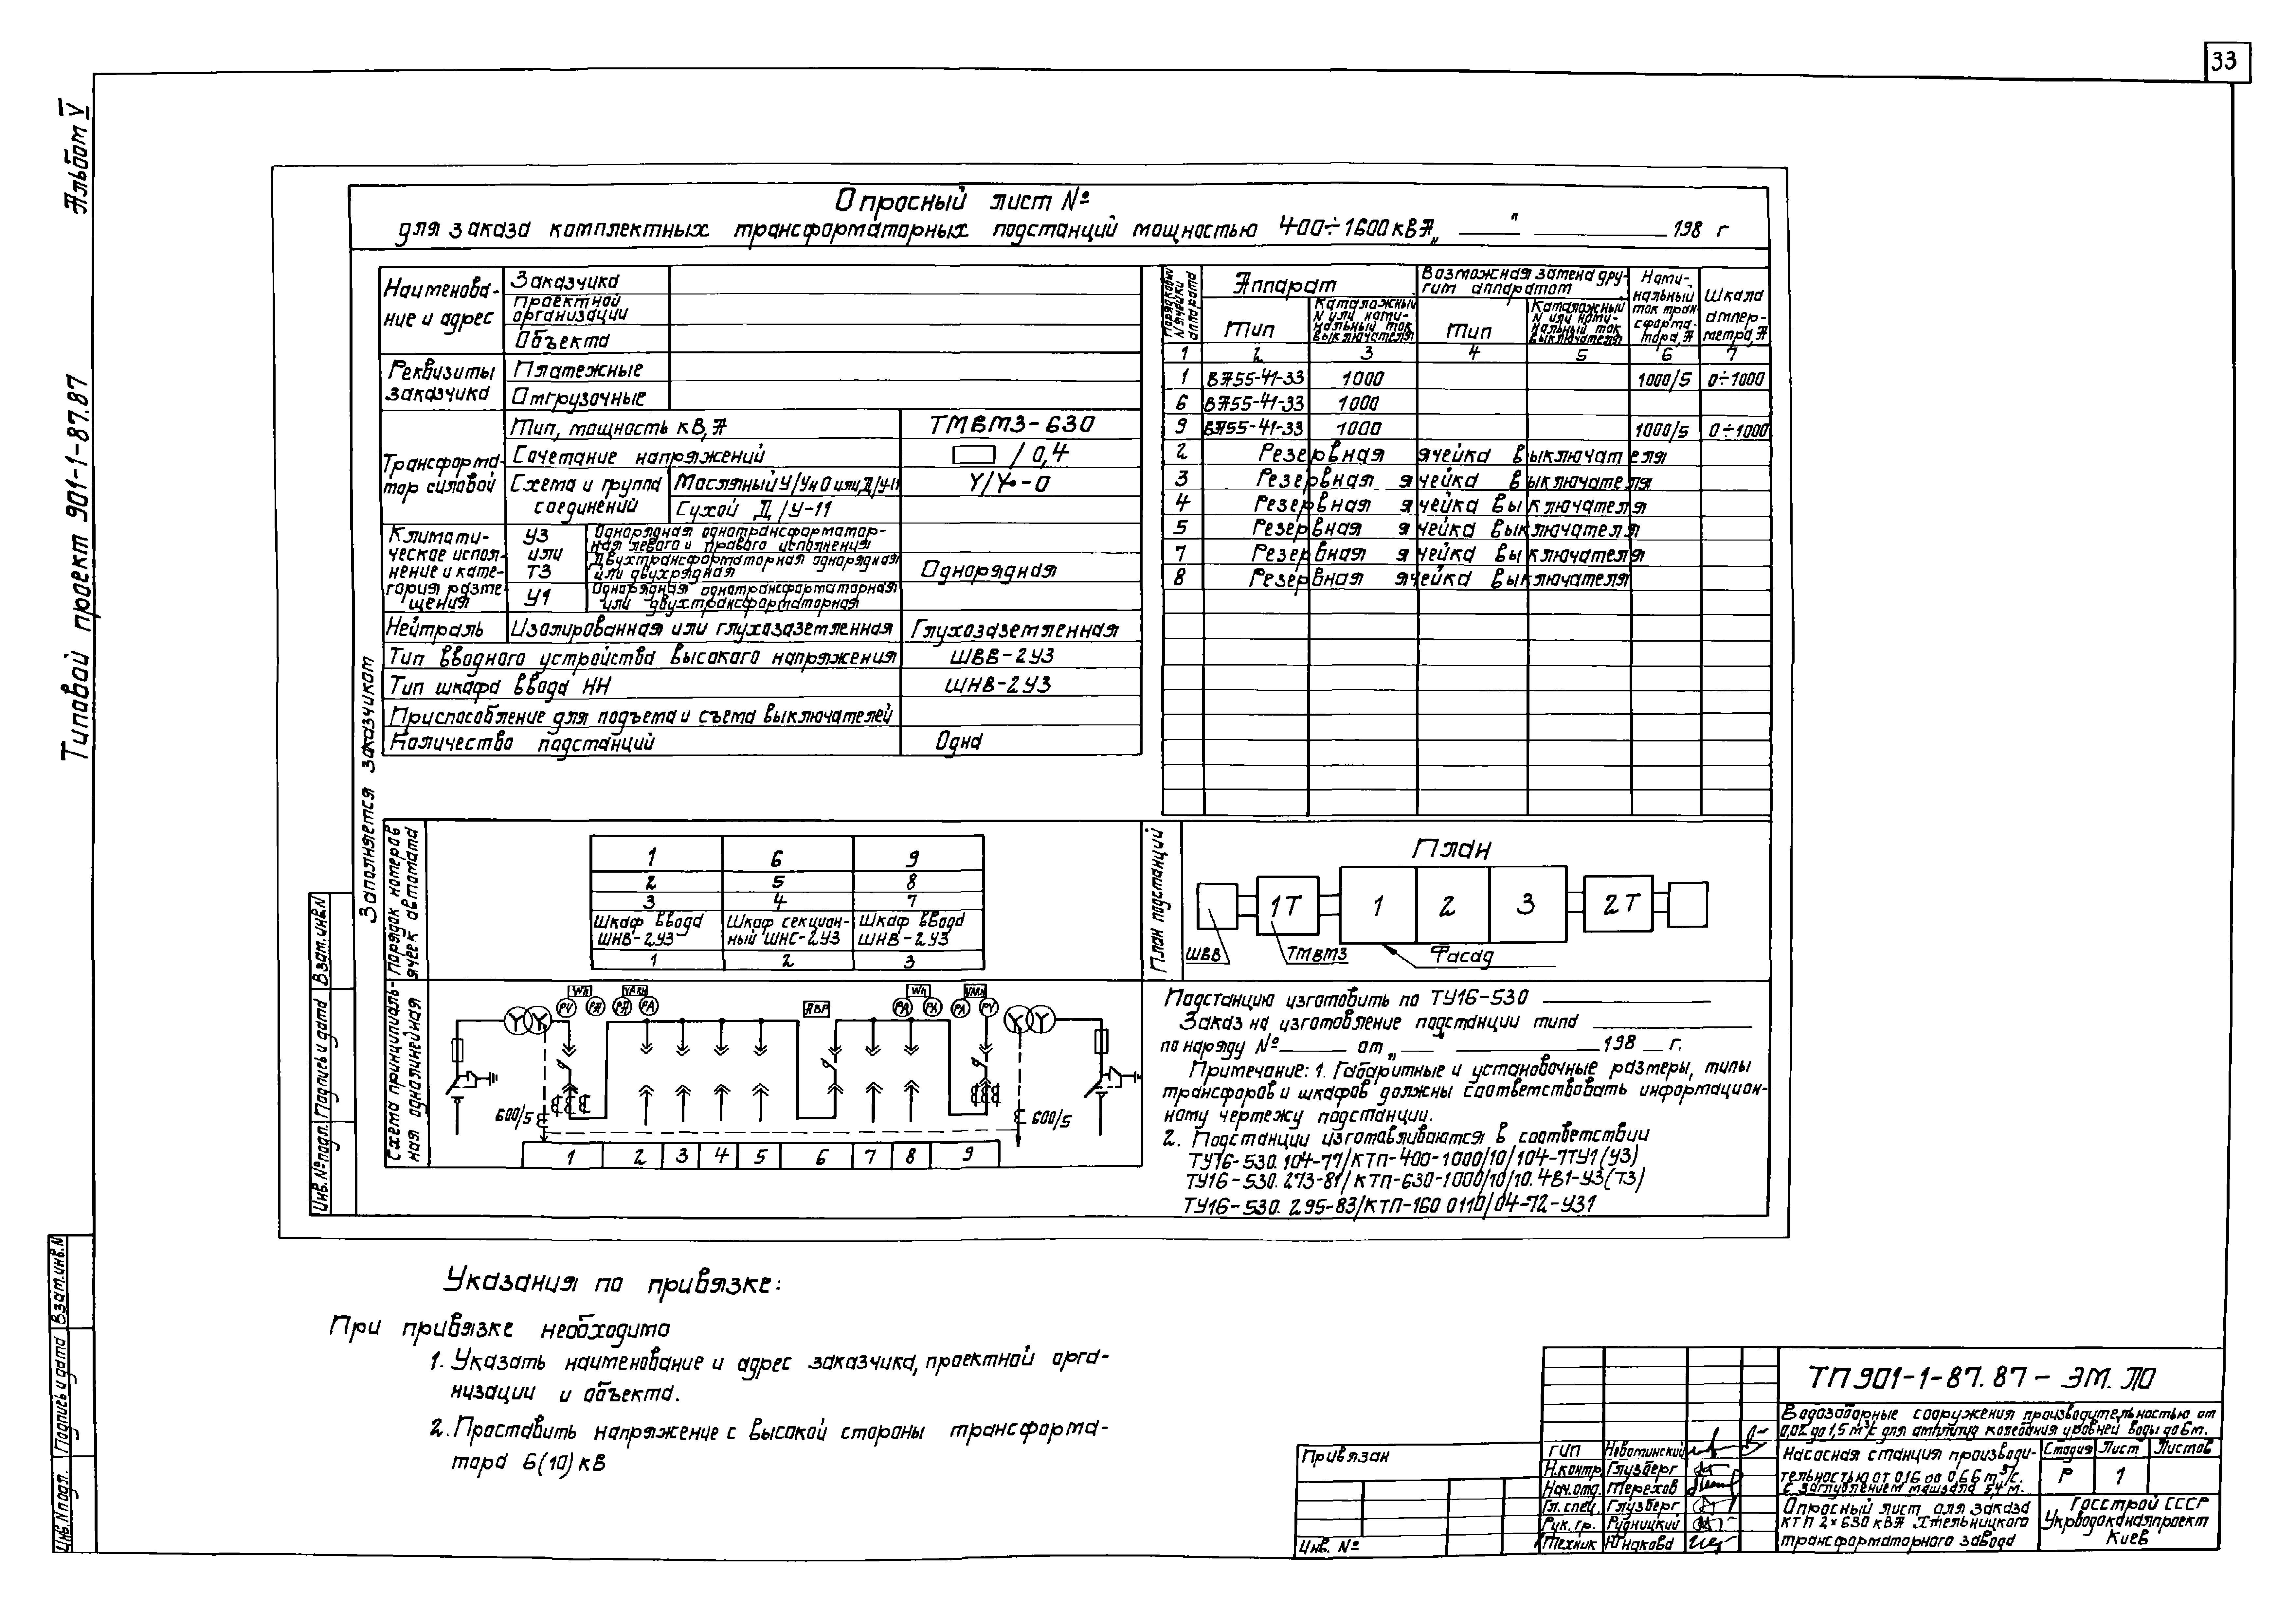 33
Альбом V
Типовой проект 901-1-87.87
Опросный лист №
для заказа комплектных трансформаторных подстанций мощностью 400÷1600 кВА „ " 198 г
Заполняется заказчиком
Наименова-
ние и адрес
Заказчика
проектной
организации
Объекта
Реквизиты
заказчика
Платежные
Отгрузочные
Трансформа-
тор силовой
Тип, мощность кВ,А
ТМВМЗ-630
Сочетание напряжений
/ 0,4
Схема и группа
соединений
Масляный У/Ун0 или Д/У-11
Y/Y-0
Сухой Д/У-11
Климати-
ческое испол-
нение и кате-
гория разме-
щения
У3
или
Т3
Однорядная однотрансформатор-
ная левого и правого исполнения
Двухтрансформаторная однорядная
или двухрядная
Однорядная
У1
Однорядная однотрансформаторная
или двухтрансформаторная
Нейтраль
Изолированная или глухозаземленная
Глухозаземленная
Тип вводного устройства высокого напряжения
ШВВ-2У3
Тип шкафа ввода НН
ШНВ-2У3
Приспособление для подъема и съема выключателей
Количество подстанций
Одна
Порядковый
N ячейки
аппарата
Аппарат
Возможная замена дру-
гим аппаратом
Номи-
нальный
ток тран
сформа-
тора, А
Шкала
ампер-
метра, А
Тип
Каталожный
N или номи-
нальный ток
выключателя
Тип
Каталожный
N или номи-
нальный ток
выключателя
1 2 3 4 5 6 7
1 ВА55-41-33 1000 1000/5 0÷1000
6 ВА55-41-33 1000
9 ВА55-41-33 1000 1000/5 0÷1000
2 Резервная ячейка выключателя
3 Резервная ячейка выключателя
4 Резервная ячейка выключателя
5 Резервная ячейка выключателя
7 Резервная ячейка выключателя
8 Резервная ячейка выключателя
Порядок номеров
ячеек автомата
1 6 9
2 5 8
3 4 7
Шкаф ввода
ШНВ-2У3
Шкаф секцион-
ный ШНС-2У3
Шкаф ввода
ШНВ-2У3
1 2 3
План подстанций
План
1Т 1 2 3 2Т
ШВВ ТМВМЗ Фасад
Схема принципиаль-
ная однолинейная
Wh VARh АВР Wh VARh
PV PA PA PA PA PA PA PV
600/5 600/5
1 2 3 4 5 6 7 8 9
Подстанцию изготовить по ТУ16-530
Заказ на изготовление подстанции типа
по наряду № от „ " 198 г.
Примечание: 1. Габаритные и установочные размеры, типы
трансфоров и шкафов должны соответствовать информацион-
ному чертежу подстанции.
2. Подстанции изготавливаются в соответствии
ТУ16-530. 104-77/КТП-400-1000/10/104-77У1(У3)
ТУ16-530. 273-81/КТП-630-1000/10/10.4В1-У3(Т3)
ТУ16-530. 295-83/КТП-160 0110/04-72-У31
Инв. № подл. Подпись и дата Взам.инв.N
Указания по привязке:
При привязке необходимо
1. Указать наименование и адрес заказчика, проектной орга-
низации и объекта.
2. Проставить напряжение с высокой стороны трансформа-
тора 6(10) кВ
Инв. N подл. Подпись и дата Взам.инв.N
Привязан
Инв. №
ГИП Новоминский
Н.контр. Глузберг
Нач.отд. Терехов
Гл.спец. Глузберг
Рук. гр. Рудницкий
Техник Юнакова
ТП 901-1-87.87 - ЭМ. ЛО
Водозаборные сооружения производительностью от
0,02 до 1,5 м³/с для амплитуд колебания уровней воды до 6м.
Насосная станция производи-
тельностью от 0,16 до 0,66 м³/с.
с заглублением машзала 5,4 м.
Стадия Лист Листов
Р 1
Опросный лист для заказа
КТП 2×630 кВА Хмельницкого
трансформаторного завода
Госстрой СССР
Укрводоканалпроект
Киев